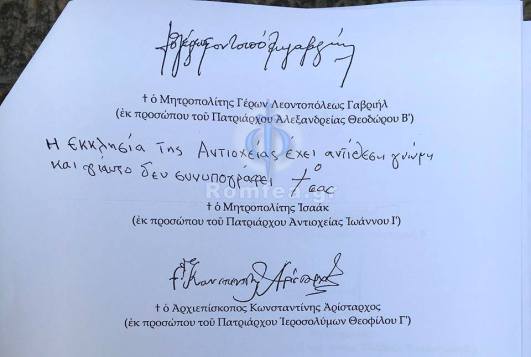 † ὁ Μητροπολίτης Γέρων Λεοντοπόλεως Γαβριήλ
(ἐκ προσώπου τοῦ Πατριάρχου Ἀλεξανδρείας Θεοδώρου Β')
Η Εκκλησία της Αντιοχείας έχει αντίθεση γνώμη
και γιαυτο δεν συνυπογράφει
Romfea.gr
† ὁ Μητροπολίτης Ἰσαάκ
(ἐκ προσώπου τοῦ Πατριάρχου Ἀντιοχείας Ἰωάννου Ι')
† ὁ Ἀρχιεπίσκοπος Κωνσταντίνης Ἀρίσταρχος
(ἐκ προσώπου τοῦ Πατριάρχου Ἱεροσολύμων Θεοφίλου Γ')